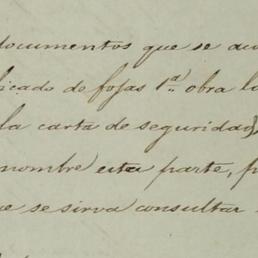 documentos que se
icado de fojas 1ª obra la
la carta de seguridad),
nombre esta parte, p
e se sirva consultar